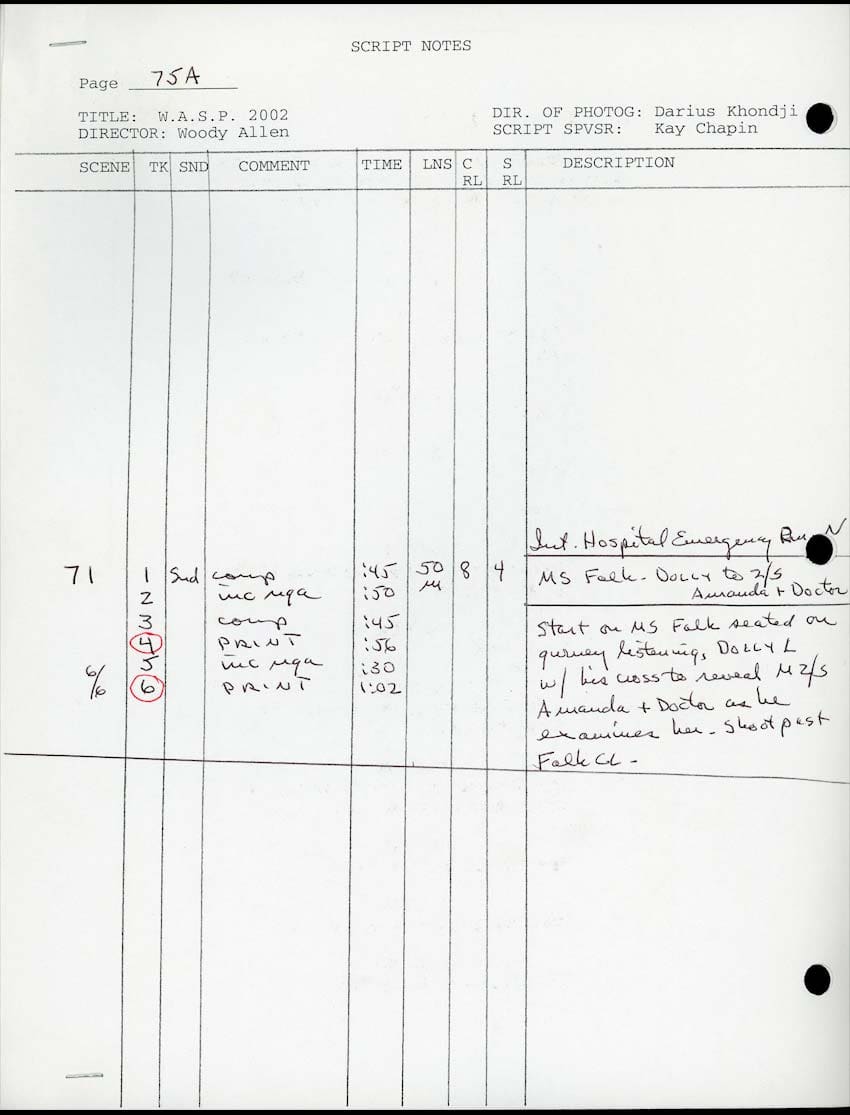 SCRIPT NOTES
Page 75A
TITLE: W.A.S.P. 2002
DIR. OF PHOTOG: Darius Khondji
DIRECTOR: Woody Allen
SCRIPT SPVSR: Kay Chapin
SCENE TK SND COMMENT TIME LNS C RL S RL DESCRIPTION
Int. Hospital Emergency Rm N
71 1 Snd comp :45 50 8 4 MS Falk - DOLLY to 2/S
M
2 inc nga :50 Amanda + Doctor
3 comp :45 Start on MS Falk seated on
4 PRINT :56 gurney listening, DOLLY L
5 inc nga :30 w/ his cross to reveal M 2/S
6/6 6 PRINT 1:02 Amanda + Doctor as he
examines her - Shoot past
Falk CL -